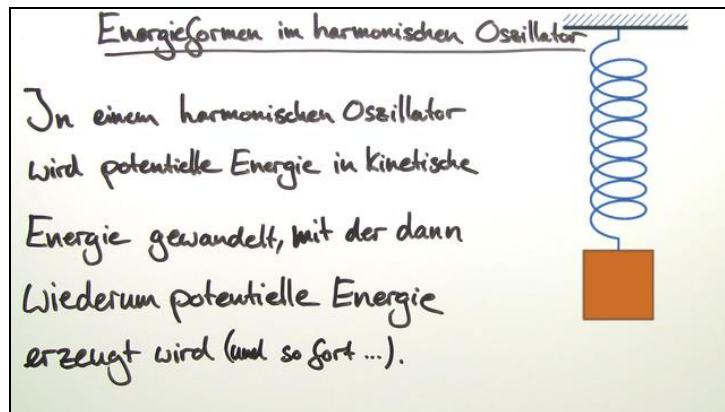 Energieformen im harmonischen Oszillator
In einem harmonischen Oszillator
wird potentielle Energie in kinetische
Energie gewandelt, mit der dann
wiederum potentielle Energie
erzeugt wird (und so fort ...).